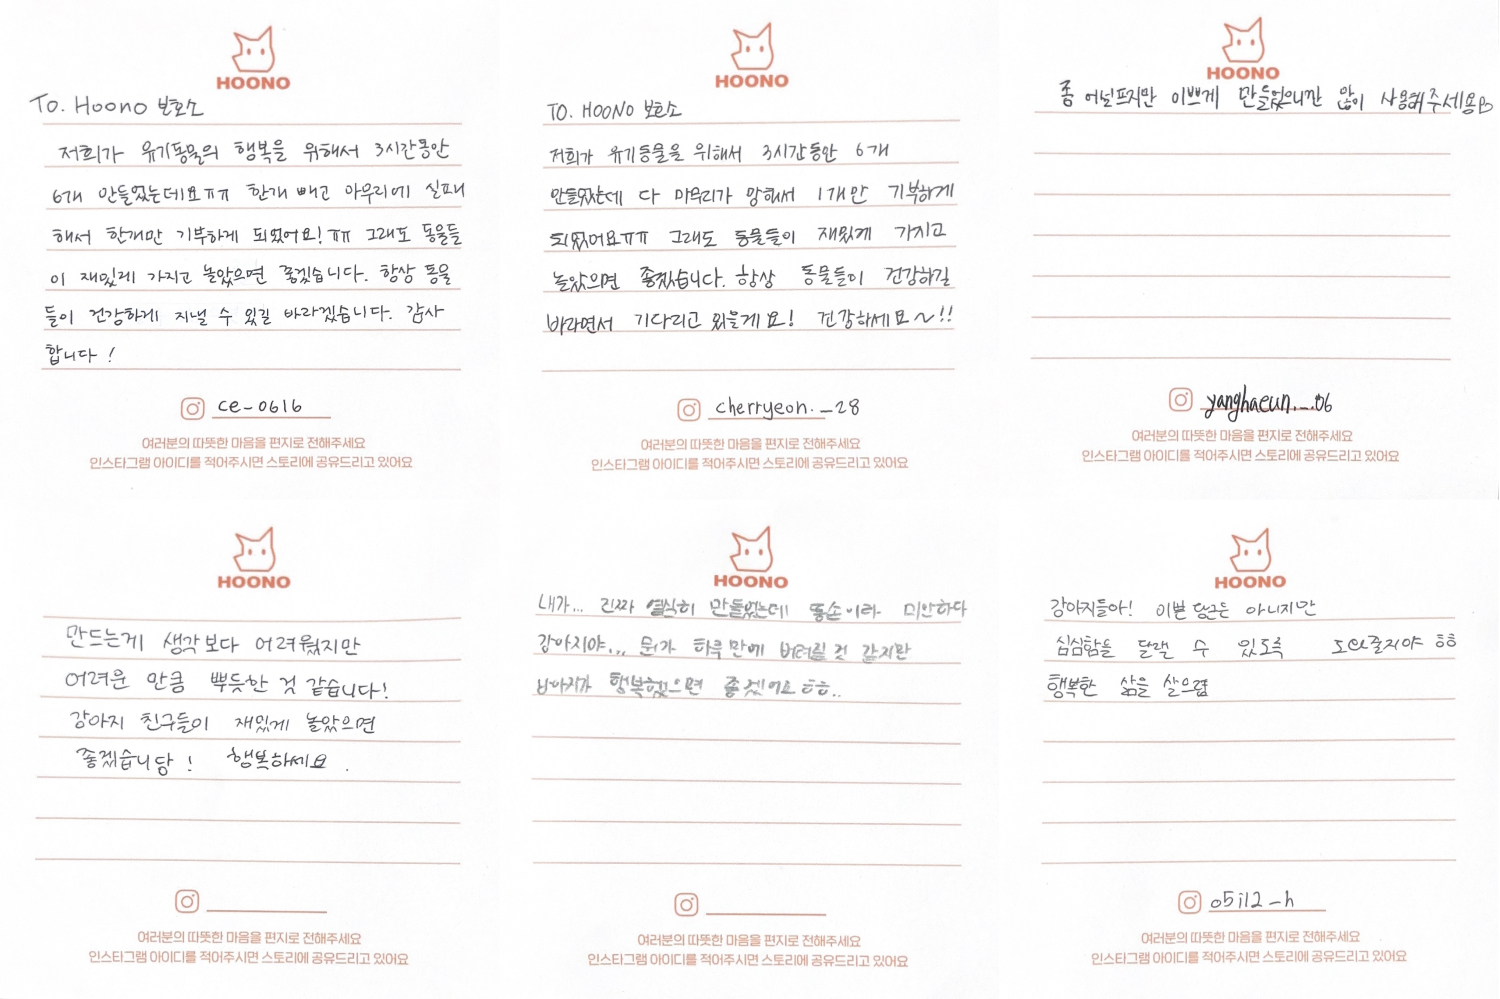 HOONO
To. Hoono 보호소
저희가 유기동물의 행복을 위해서 3시간동안
6개 만들었는데요ㅠㅠ 한개 빼고 마무리에 실패
해서 한개만 기부하게 되었어요! ㅠㅠ 그래도 동물들
이 재밌게 가지고 놀았으면 좋겠습니다. 항상 동물
들이 건강하게 지낼 수 있길 바라겠습니다. 감사
합니다!
ce-0616
여러분의 따뜻한 마음을 편지로 전해주세요
인스타그램 아이디를 적어주시면 스토리에 공유드리고 있어요
HOONO
TO. HOONO 보호소
저희가 유기동물을 위해서 3시간동안 6개
만들었는데 다 마무리가 망해서 1개만 기부하게
되었어요ㅠㅠ 그래도 동물들이 재밌게 가지고
놀았으면 좋겠습니다. 항상 동물들이 건강하길
바라면서 기다리고 있을게요! 건강하세요~!!
cherryeon._28
여러분의 따뜻한 마음을 편지로 전해주세요
인스타그램 아이디를 적어주시면 스토리에 공유드리고 있어요
HOONO
좀 어설프지만 이쁘게 만들었으니깐 많이 사용해주세용
yanghaeun._.06
여러분의 따뜻한 마음을 편지로 전해주세요
인스타그램 아이디를 적어주시면 스토리에 공유드리고 있어요
HOONO
만드는게 생각보다 어려웠지만
어려운 만큼 뿌듯한 것 같습니다!
강아지 친구들이 재밌게 놀았으면
좋겠습니당! 행복하세요.
여러분의 따뜻한 마음을 편지로 전해주세요
인스타그램 아이디를 적어주시면 스토리에 공유드리고 있어요
HOONO
내가... 진짜 열심히 만들었는데 똥손이라 미안하다
강아지야... 뭔가 하루만에 버려질 것 같지만
강아지가 행복했으면 좋겠어요 ㅎㅎ..
여러분의 따뜻한 마음을 편지로 전해주세요
인스타그램 아이디를 적어주시면 스토리에 공유드리고 있어요
HOONO
강아지들아! 이쁜 당근은 아니지만
심심함을 달랠 수 있도록 도와줄지야 ㅎㅎ
행복한 삶을 살으렴
o5i12_h
여러분의 따뜻한 마음을 편지로 전해주세요
인스타그램 아이디를 적어주시면 스토리에 공유드리고 있어요